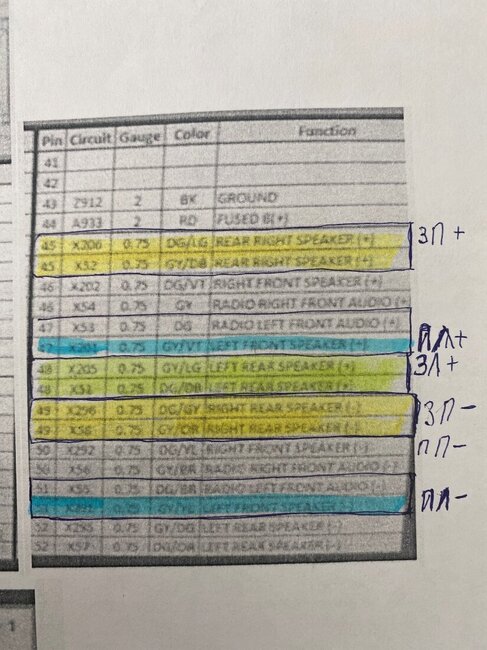 Pin Circuit Gauge Color Function
41
42
43 Z912 2 BK GROUND
44 A933 2 RD FUSED B(+)
45 X206 0.75 DG/LG REAR RIGHT SPEAKER (+) ЗП +
45 X52 0.75 GY/DB REAR RIGHT SPEAKER (+)
46 X202 0.75 DG/VT RIGHT FRONT SPEAKER (+)
46 X54 0.75 GY RADIO RIGHT FRONT AUDIO (+)
47 X53 0.75 DG RADIO LEFT FRONT AUDIO (+)
47 X201 0.75 GY/VT LEFT FRONT SPEAKER (+) ПЛ+
48 X205 0.75 GY/LG LEFT REAR SPEAKER (+) ЗЛ+
48 X51 0.75 DG/DB LEFT REAR SPEAKER (+)
49 X296 0.75 DG/GY RIGHT REAR SPEAKER (-) ЗП -
49 X58 0.75 GY/OR RIGHT REAR SPEAKER (-)
50 X292 0.75 DG/YL RIGHT FRONT SPEAKER (-) ПП -
50 X56 0.75 GY/BR RADIO RIGHT FRONT AUDIO (-)
51 X55 0.75 DG/BR RADIO LEFT FRONT AUDIO (-)
0.75 LEFT FRONT SPEAKER (-) ПЛ -
52 X295 0.75 GY/DG LEFT REAR SPEAKER (-)
52 X57 0.75 DG/OR LEFT REAR SPEAKER (-)
1